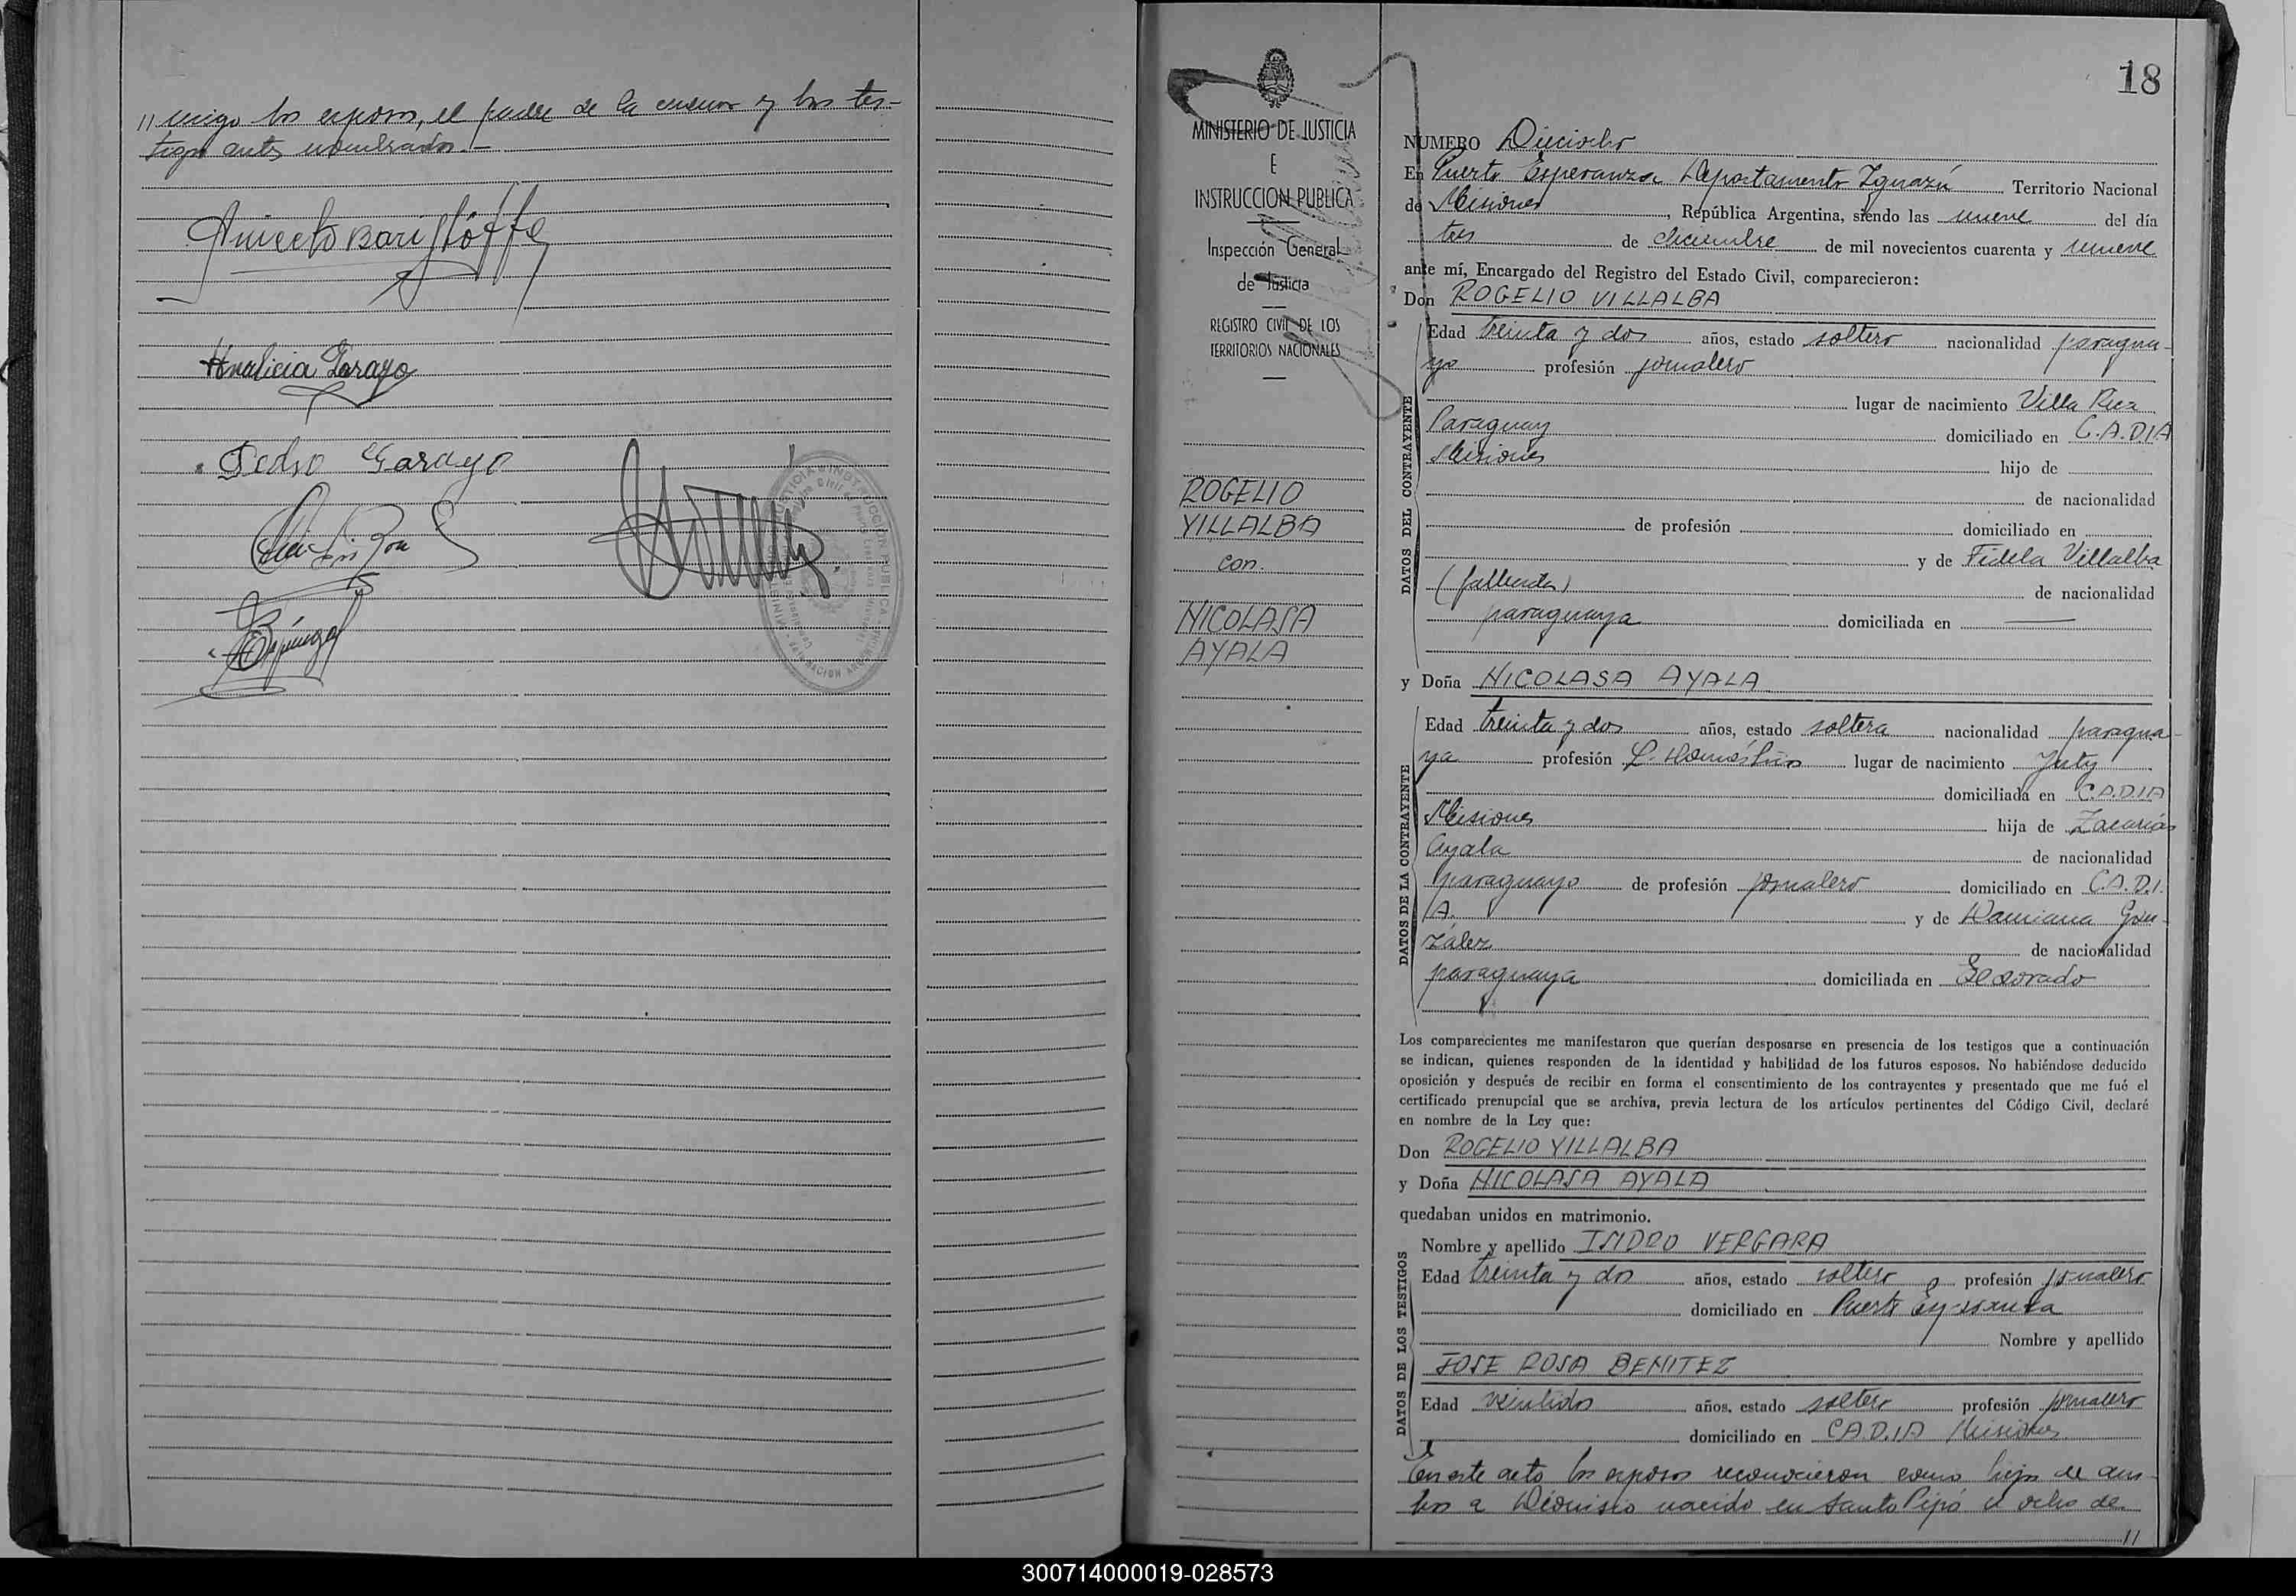 // migo los esposos, el padre de la menor y los tes-
tigos antes nombrados.-
Aniceto Bari
Analicia Garayo
Pedro Garayo
18
MINISTERIO DE JUSTICIA
E
INSTRUCCION PUBLICA
Inspección General
de Justicia
REGISTRO CIVIL DE LOS
TERRITORIOS NACIONALES
ROGELIO
VILLALBA
con.
NICOLASA
AYALA
NUMERO Dieciocho
En Puerto Esperanza Departamento Iguazú Territorio Nacional
de Misiones, República Argentina, siendo las nueve del día
tres de diciembre de mil novecientos cuarenta y nueve
ante mí, Encargado del Registro del Estado Civil, comparecieron:
Don ROGELIO VILLALBA
DATOS DEL CONTRAYENTE
Edad treinta y dos años, estado soltero nacionalidad paragua-
yo profesión jornalero
lugar de nacimiento Villa Rica
Paraguay domiciliado en C.A.D.I.A
Misiones hijo de
de nacionalidad
de profesión domiciliado en
y de Fidela Villalba
(fallecida) de nacionalidad
paraguaya domiciliada en —
y Doña NICOLASA AYALA
DATOS DE LA CONTRAYENTE
Edad treinta y dos años, estado soltera nacionalidad paragua-
ya profesión L. Domésticas lugar de nacimiento Yuty
domiciliada en C.A.D.I.A
Misiones hija de Zacarías
Ayala de nacionalidad
paraguayo de profesión jornalero domiciliado en C.A.D.I.
A. y de Damiana Gon-
zález de nacionalidad
paraguaya domiciliada en Eldorado
Los comparecientes me manifestaron que querían desposarse en presencia de los testigos que a continuación
se indican, quienes responden de la identidad y habilidad de los futuros esposos. No habiéndose deducido
oposición y después de recibir en forma el consentimiento de los contrayentes y presentado que me fué el
certificado prenupcial que se archiva, previa lectura de los artículos pertinentes del Código Civil, declaré
en nombre de la Ley que:
Don ROGELIO VILLALBA
y Doña NICOLASA AYALA
quedaban unidos en matrimonio.
DATOS DE LOS TESTIGOS
Nombre y apellido ISIDRO VERGARA
Edad treinta y dos años, estado soltero profesión jornalero
domiciliado en Puerto Esperanza
Nombre y apellido
JOSE ROSA BENITEZ
Edad veintidos años, estado soltero profesión jornalero
domiciliado en C.A.D.I.A Misiones
En este acto los esposos reconocieron como hijos de am-
bos a Dionisio nacido en Santo Pipó el ocho de
//
300714000019-028573